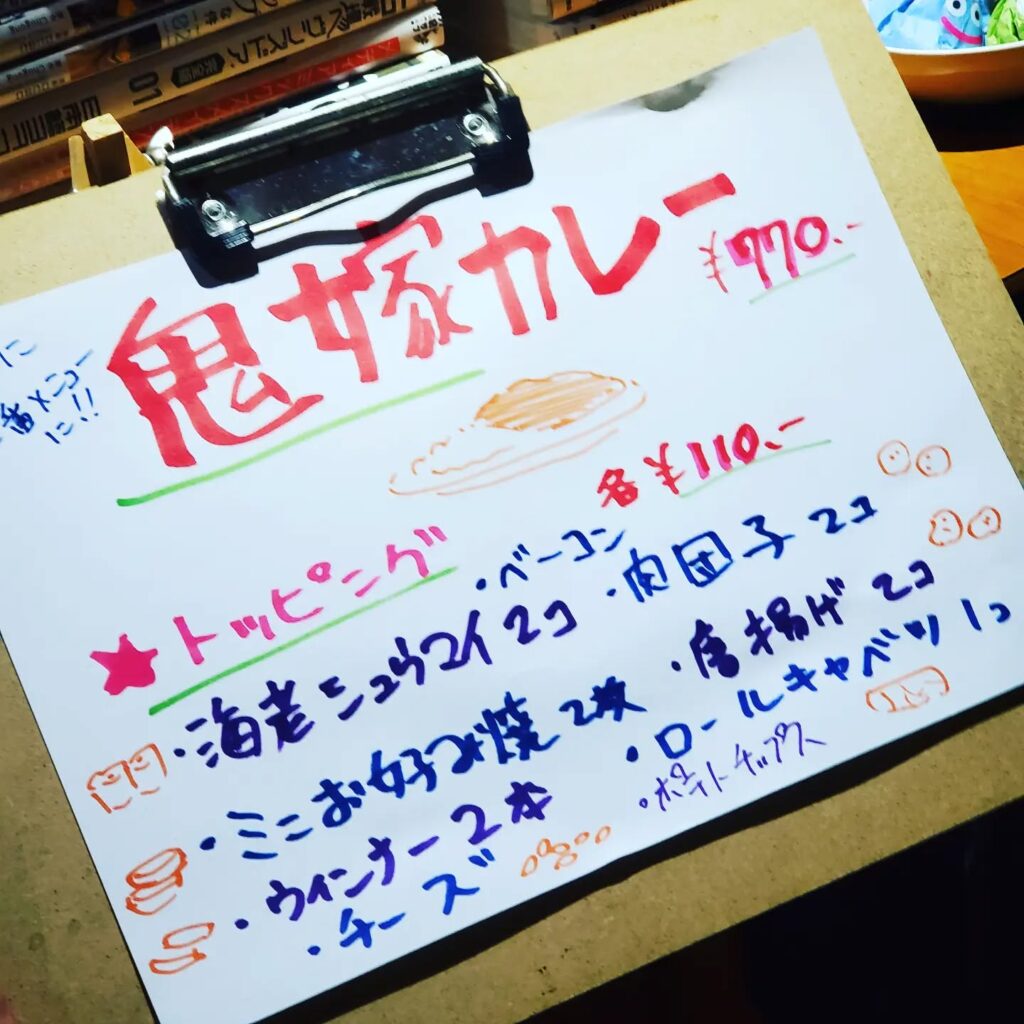 鬼嫁カレー ¥770.-
に
番メニュー
に!!
各¥110.-
★トッピング ・ベーコン
・海老シュウマイ2コ ・肉団子 2コ
・ミニお好み焼 2枚 ・唐揚げ 2コ
・ウインナー2本 ・ロールキャベツ 1コ
・チーズ ・ポテトチップス
完全版 01